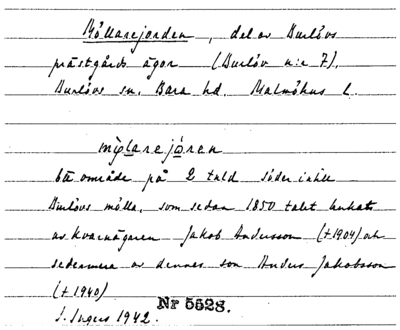 Möllarejorden, del av Burlövs
prästgårds ägor (Burlöv n:r 7).
Burlövs sn. Bara hd. Malmöhus l.
Ett område på 2 tnld söder intill
Burlövs mölla, som sedan 1850 talet brukats
av kvarnägaren Jakob Andersson (†1904) och
sedermera av dennes son Anders Jakobsson
(†1940)
S. Ingers 1942.
Nr 5528.